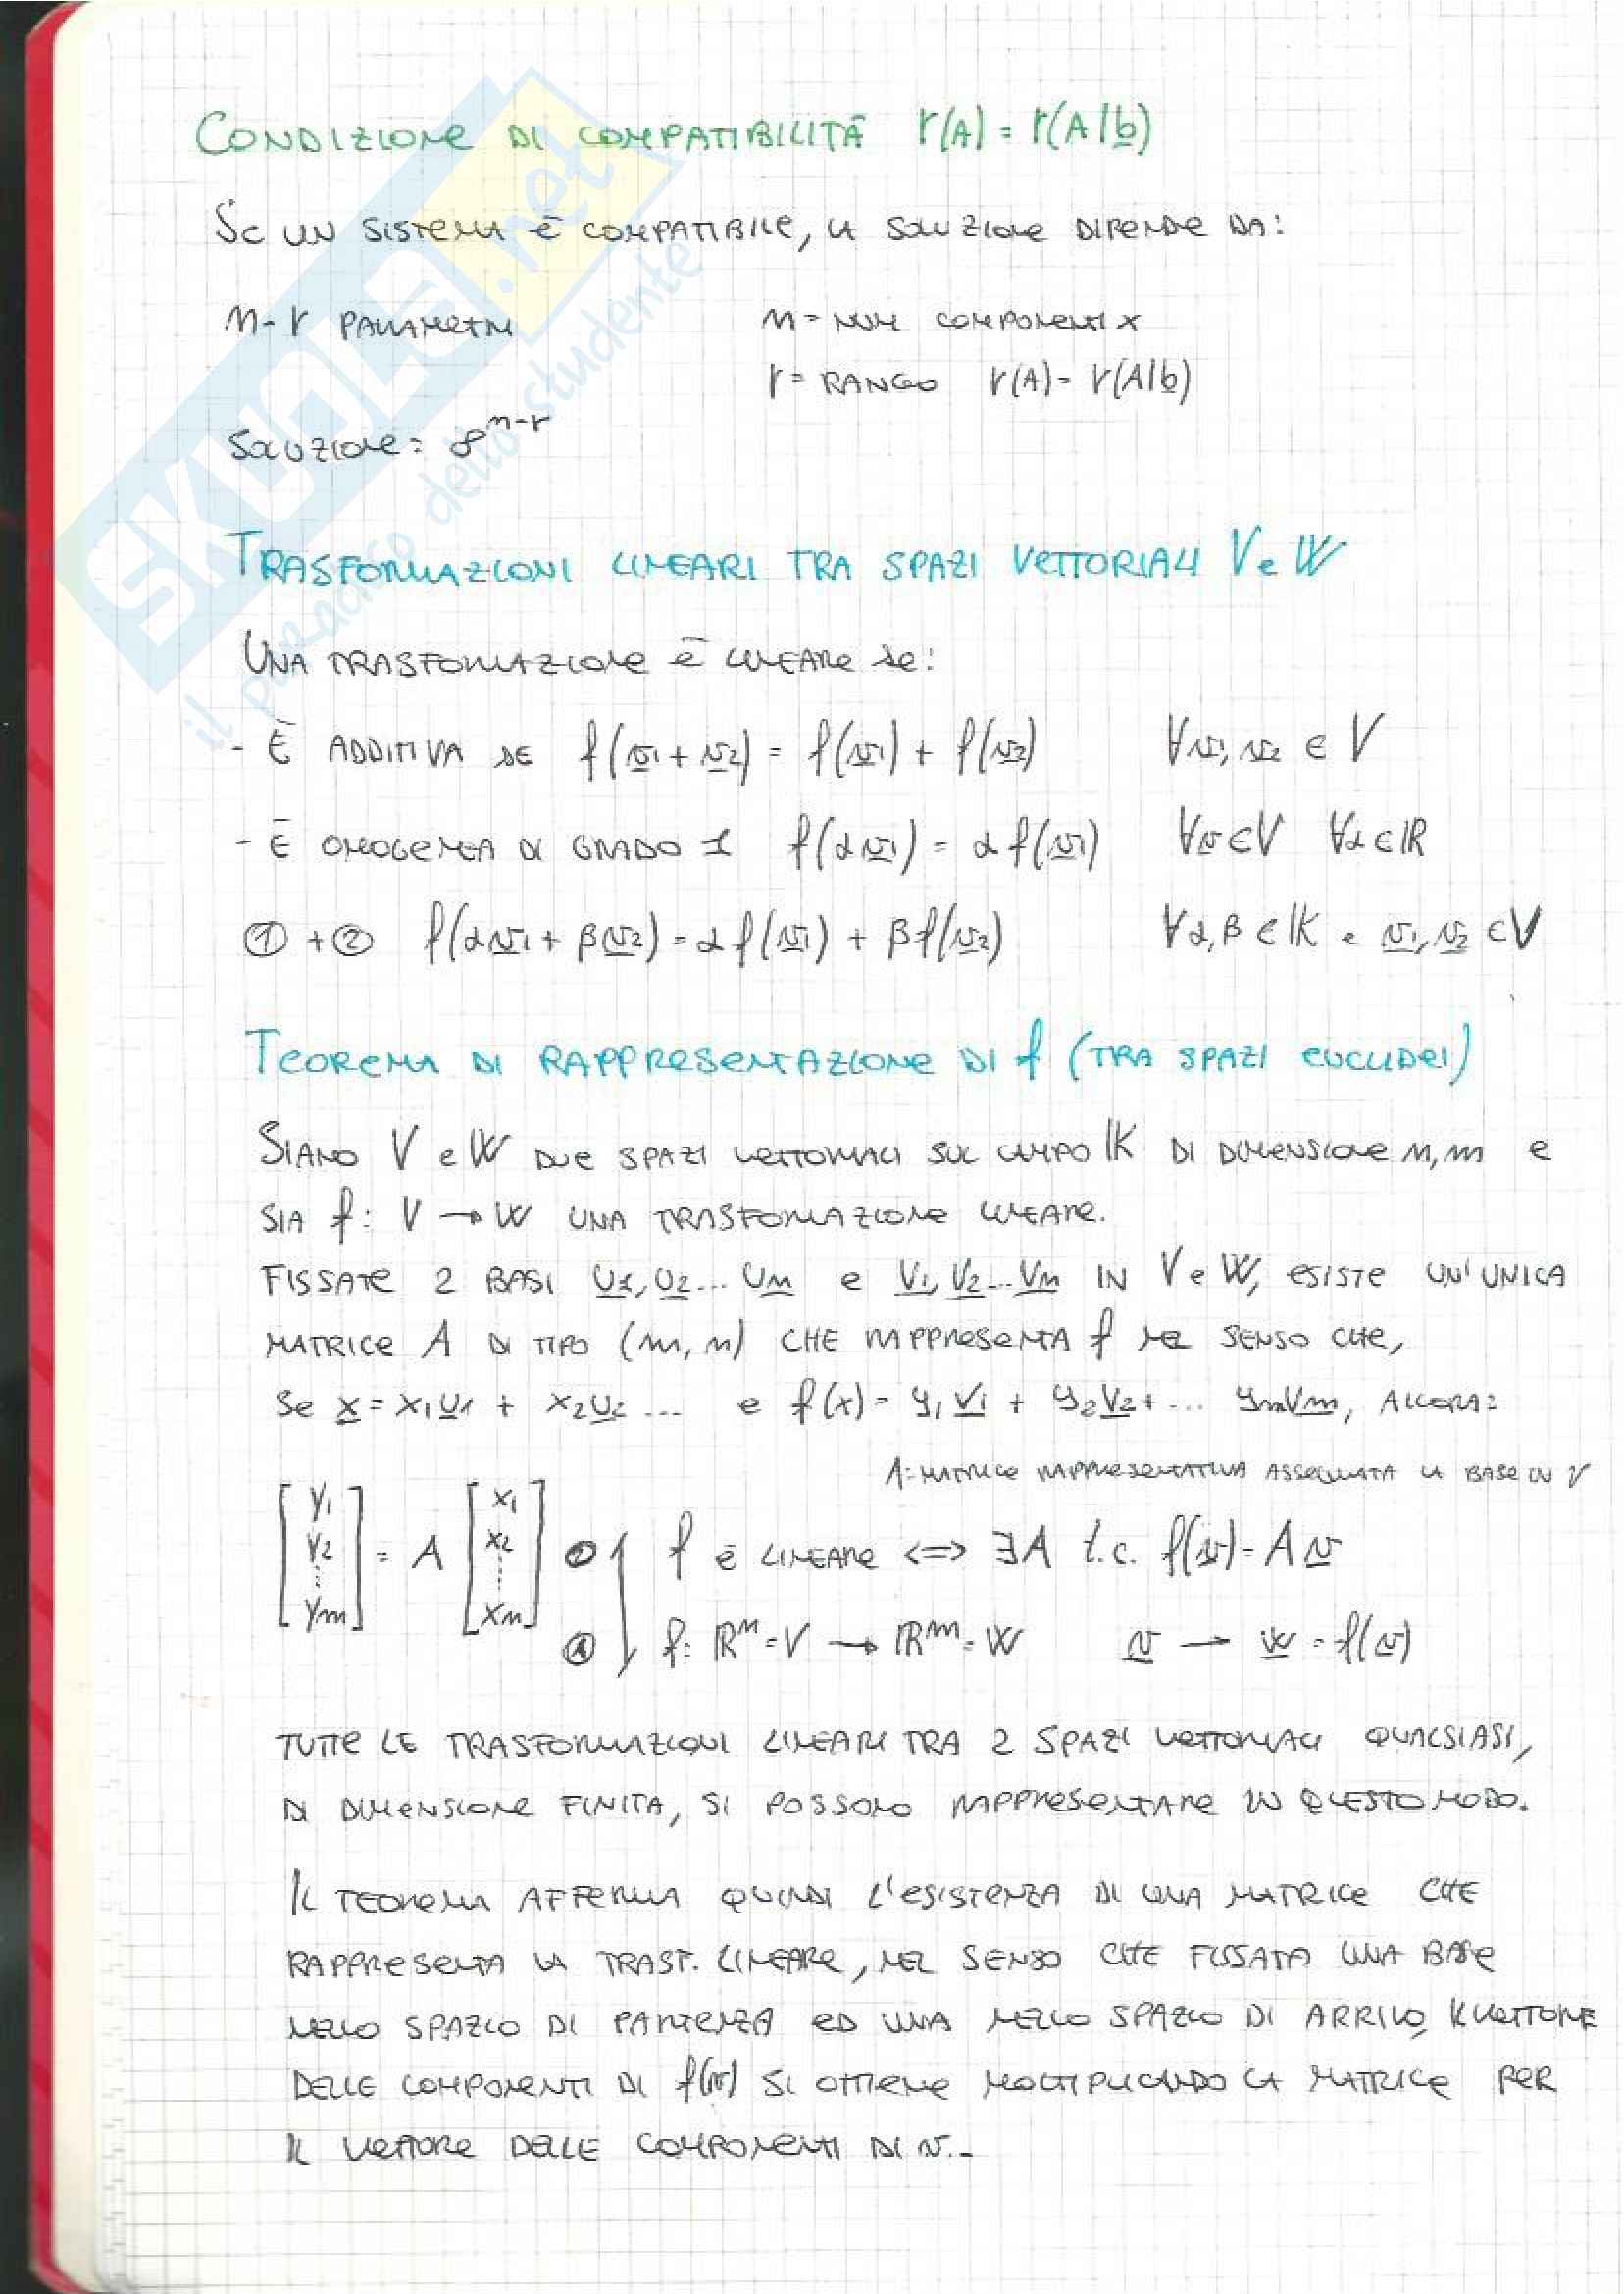 CONDIZIONE DI COMPATIBILITÀ r(A) = r(A|b)
SE UN SISTEMA È COMPATIBILE, LA SOLUZIONE DIPENDE DA:
n-r PARAMETRI n = NUM COMPONENTI x
r = RANGO r(A) = r(A|b)
SOLUZIONE: ∞^(n-r)
TRASFORMAZIONI LINEARI TRA SPAZI VETTORIALI V e W
UNA TRASFORMAZIONE È LINEARE se:
- È ADDITIVA SE f(v1 + v2) = f(v1) + f(v2) ∀v1, v2 ∈ V
- È OMOGENEA DI GRADO 1 f(αv1) = αf(v1) ∀v∈V ∀α∈ℝ
① + ② f(αv1 + βv2) = αf(v1) + βf(v2) ∀α,β ∈ 𝕂 e v1, v2 ⊂ V
TEOREMA DI RAPPRESENTAZIONE DI f (TRA SPAZI EUCLIDEI)
SIANO V e W DUE SPAZI VETTORIALI SUL CAMPO 𝕂 DI DIMENSIONE n, m e
SIA f: V → W UNA TRASFORMAZIONE LINEARE.
FISSATE 2 BASI u1, u2 ... un e v1, v2 ... vm IN V e W, ESISTE UN'UNICA
MATRICE A DI TIPO (m, n) CHE RAPPRESENTA f NEL SENSO CHE,
Se x = x1u1 + x2u2 ... e f(x) = y1v1 + y2v2 + ... ymvm, ALLORA:
A = MATRICE RAPPRESENTATIVA ASSEGNATA LA BASE IN V
[y1 y2 ... ym] = A [x1 x2 ... xn] f È LINEARE <=> ∃A t.c. f(v) = Av
f: ℝ^n = V → ℝ^m = W v → w = f(v)
TUTTE LE TRASFORMAZIONI LINEARI TRA 2 SPAZI VETTORIALI QUALSIASI,
DI DIMENSIONE FINITA, SI POSSONO RAPPRESENTARE IN QUESTO MODO.
IL TEOREMA AFFERMA QUINDI L'ESISTENZA DI UNA MATRICE CHE
RAPPRESENTA LA TRASF. LINEARE, NEL SENSO CHE FISSATA UNA BASE
NELLO SPAZIO DI PARTENZA ED UNA NELLO SPAZIO DI ARRIVO, IL VETTORE
DELLE COMPONENTI DI f(v) SI OTTIENE MOLTIPLICANDO LA MATRICE PER
IL VETTORE DELLE COMPONENTI DI v.
SKUOLA.net
il paradiso dello studente